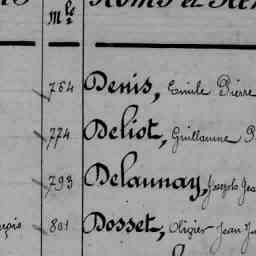 Mle Noms et
764 Denis, Emile Pierre
774 Deliot, Guillaume
793 Delaunay, Joseph
801 Dosset, Olivier Jean